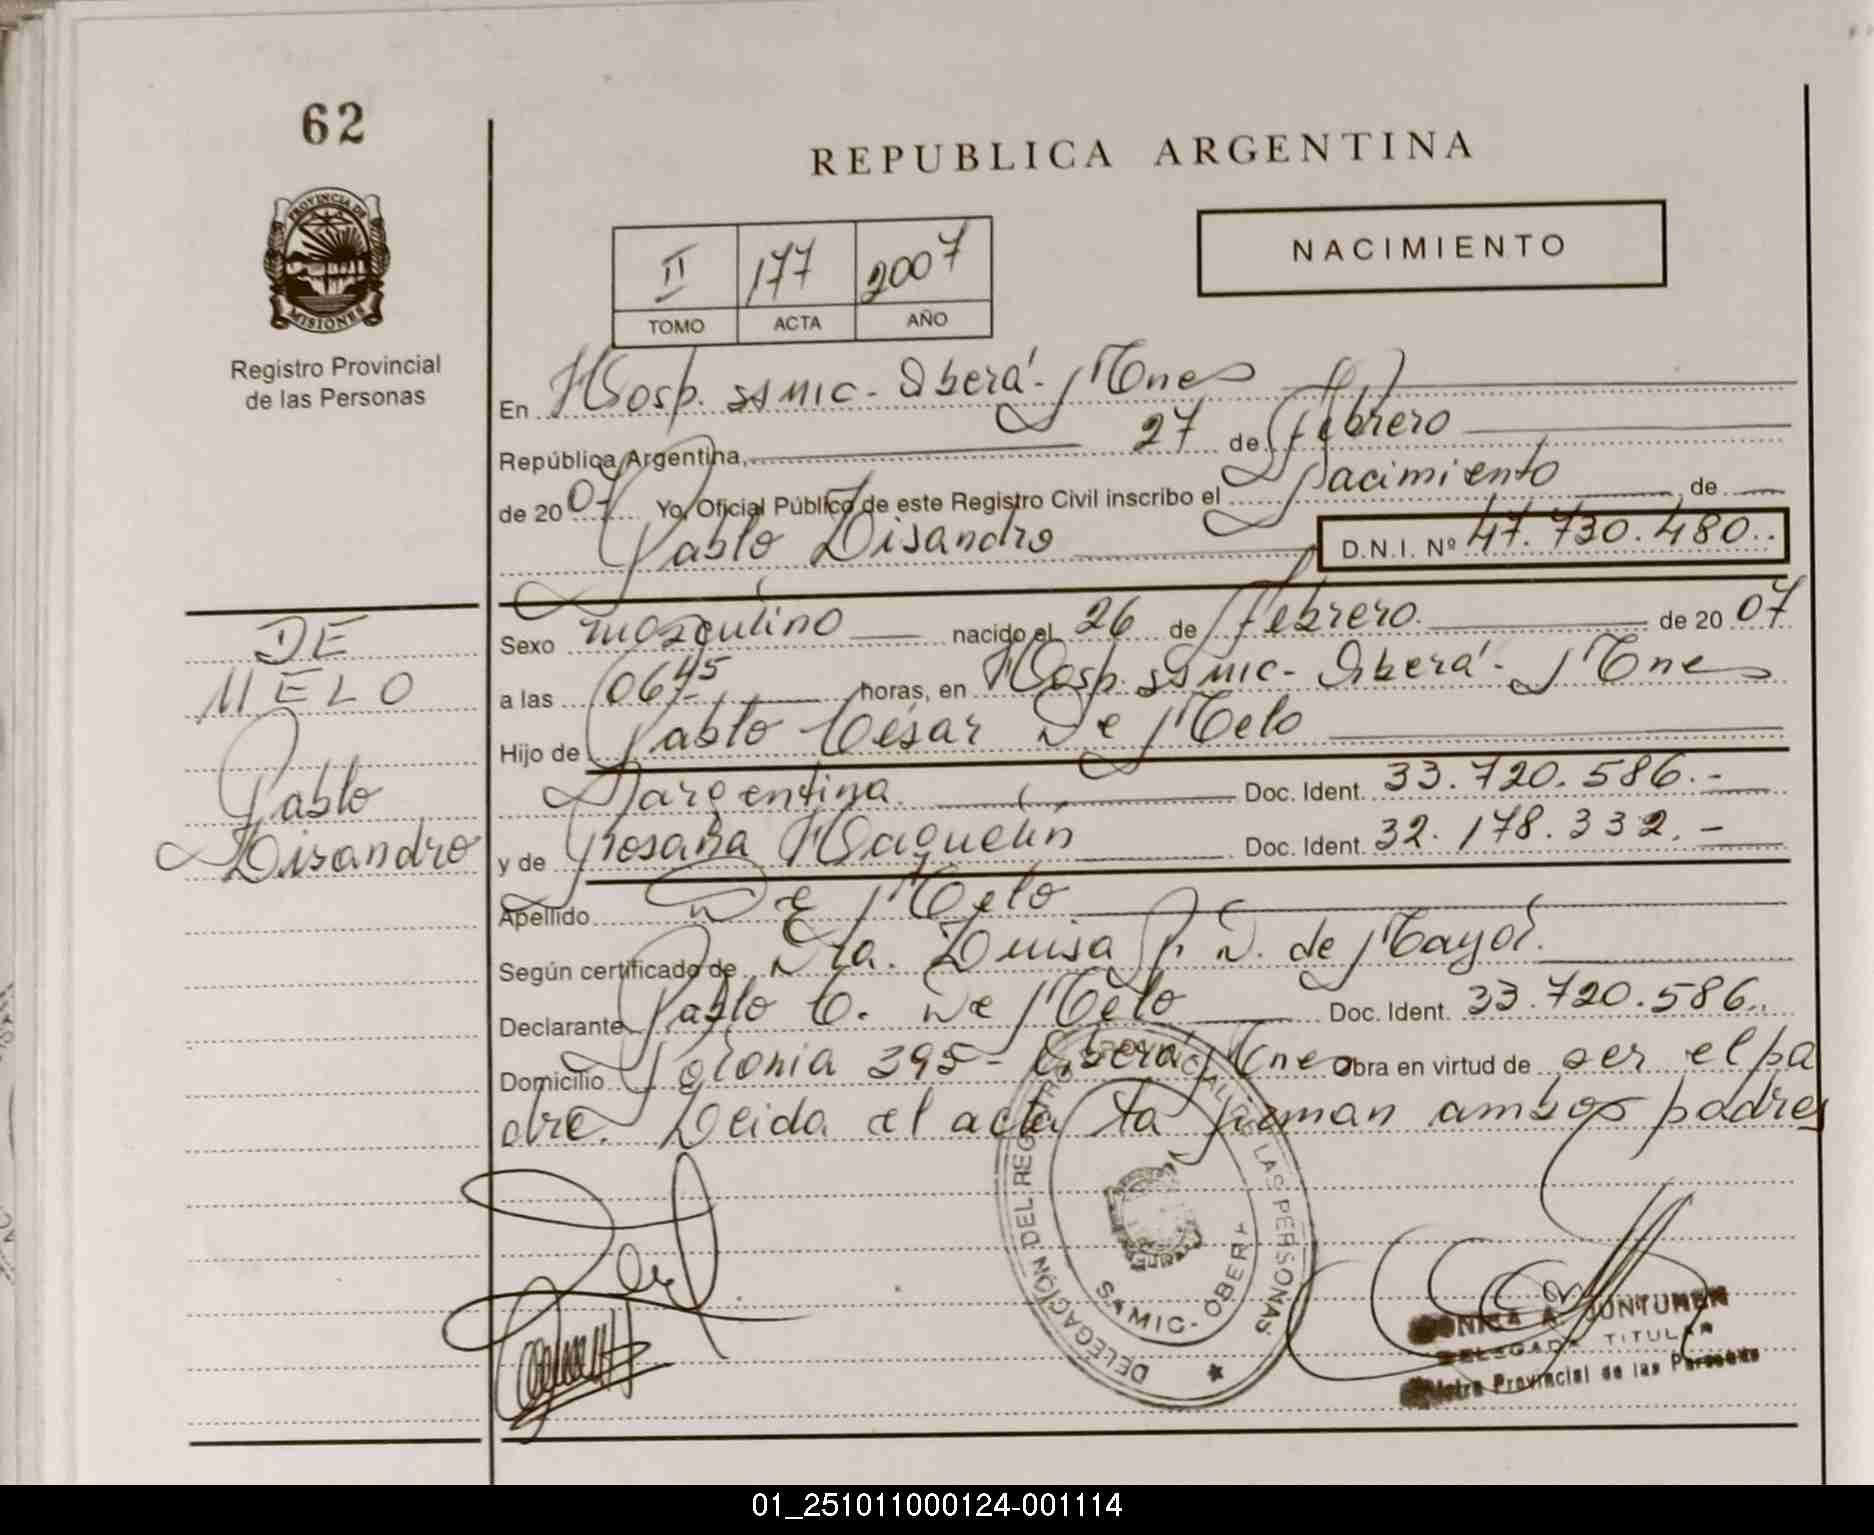 62
REPUBLICA ARGENTINA
PROVINCIA DE
MISIONES
Registro Provincial
de las Personas
NACIMIENTO
II 177 2007
TOMO ACTA AÑO
En Hosp. SAMIC - Oberá - Mnes
República Argentina, 27 de Febrero
de 2007 Yo, Oficial Público de este Registro Civil inscribo el Nacimiento de
Pablo Lisandro D.N.I. Nº 47.730.480..
DE
MELO
Pablo
Lisandro
Sexo masculino nacido el 26 de Febrero. de 2007
a las 0645 horas, en Hosp. SAMIC - Oberá - Mnes
Hijo de Pablo César De Melo
Argentina. Doc. Ident. 33.720.586.-
y de Rosana Doc. Ident. 32.178.332.-
Apellido De Melo
Según certificado de Dra. Luisa P. D. de Mayol.
Declarante Pablo C. De Melo Doc. Ident. 33.720.586..
Domicilio Polonia 395 - Oberá Mnes Obra en virtud de ser el pa
dre. Leida el acta la firman ambos padres
DELEGACIÓN DEL REGISTRO PROVINCIAL DE LAS PERSONAS
SAMIC - OBERA
MONICA A. JUNTUNEN
DELEGADA TITULAR
Registro Provincial de las Personas
01_251011000124-001114